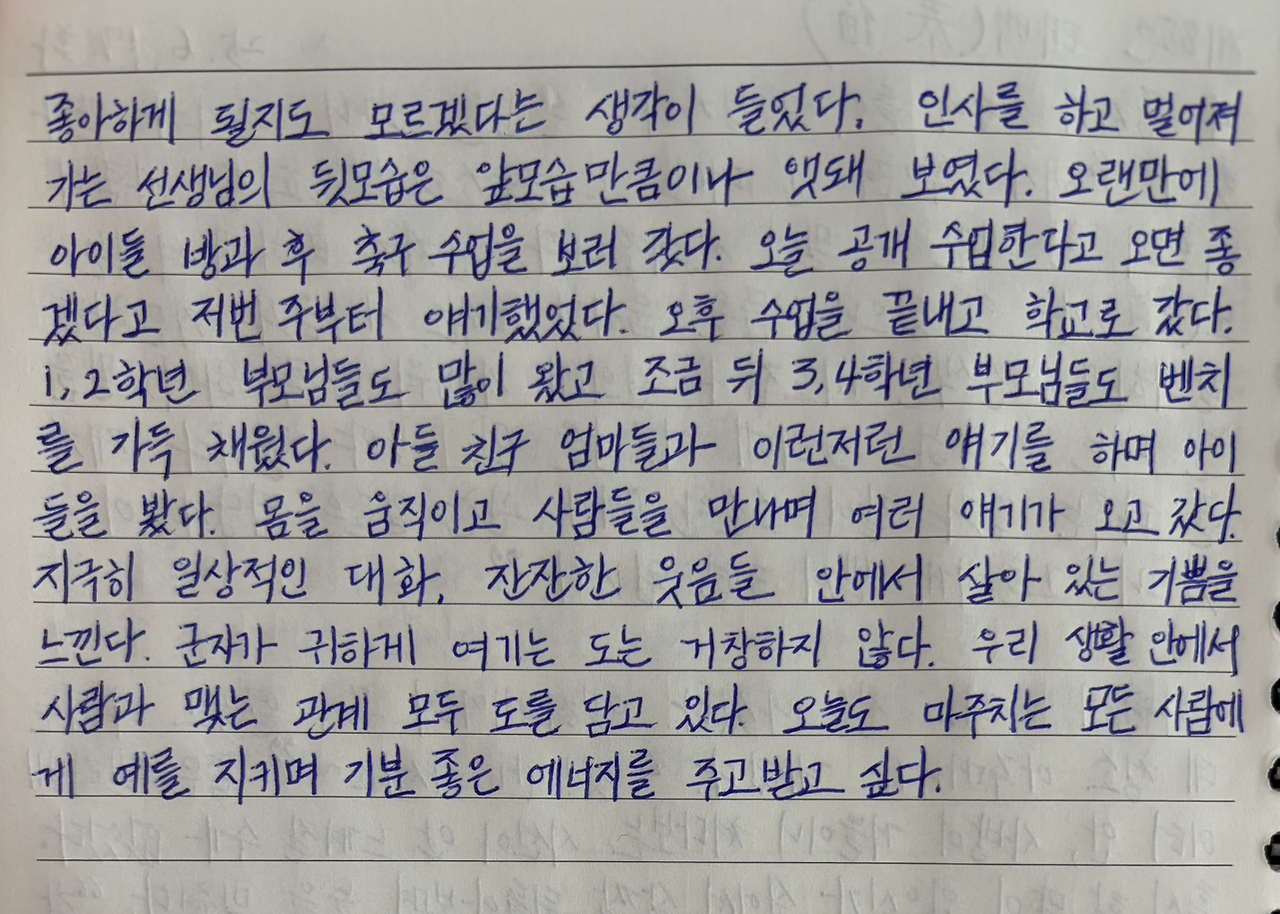 좋아하게 될지도 모르겠다는 생각이 들었다. 인사를 하고 멀어져
가는 선생님의 뒷모습은 앞모습만큼이나 앳돼 보였다. 오랜만에
아이들 방과 후 축구 수업을 보러 갔다. 오늘 공개 수업한다고 오면 좋
겠다고 저번 주부터 얘기했었다. 오후 수업을 끝내고 학교로 갔다.
1, 2학년 부모님들도 많이 왔고 조금 뒤 3, 4학년 부모님들도 벤치
를 가득 채웠다. 아들 친구 엄마들과 이런저런 얘기를 하며 아이
들을 봤다. 몸을 움직이고 사람들을 만나며 여러 얘기가 오고 갔다.
지극히 일상적인 대화, 잔잔한 웃음들 안에서 살아 있는 기쁨을
느낀다. 군자가 귀하게 여기는 도는 거창하지 않다. 우리 생활 안에서
사람과 맺는 관계 모두 도를 담고 있다. 오늘도 마주치는 모든 사람에
게 예를 지키며 기분 좋은 에너지를 주고받고 싶다.